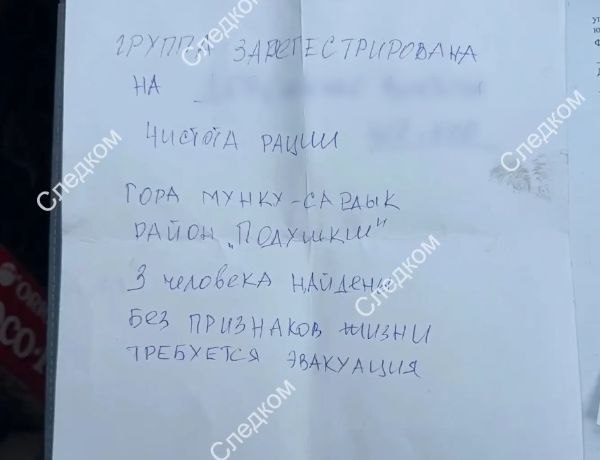 ГРУППА ЗАРЕГЕСТРИРОВАНА
НА
ЧИСТОТА РАЦИИ
ГОРА МУНКУ-САРДЫК
РАЙОН „ПОДУШКИ"
3 человека НАЙДЕНЫ
БЕЗ ПРИЗНАКОВ ЖИЗНИ
ТРЕБУЕТСЯ ЭВАКУАЦИЯ
Следком
Следком
Следком
Следком
Следком